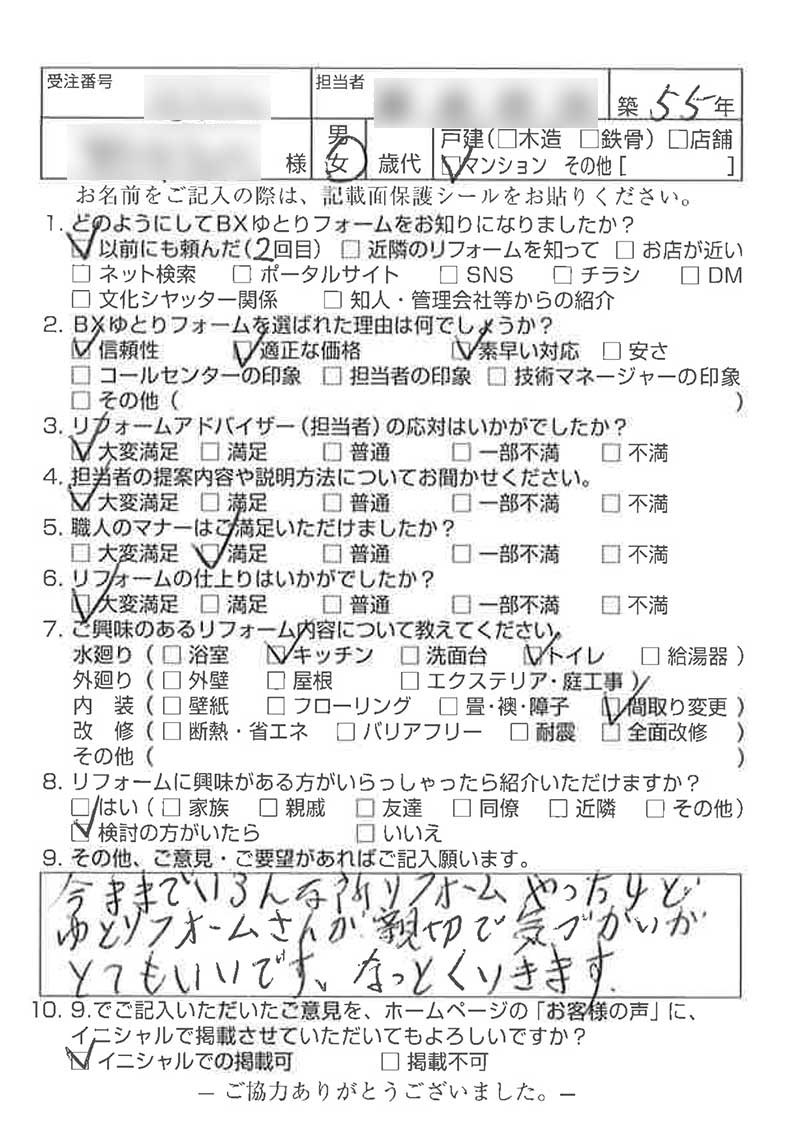 受注番号 担当者 築 55 年
様 男 女 歳代 戸建(□木造 □鉄骨) □店舗
☑マンション その他[ ]
お名前をご記入の際は、記載面保護シールをお貼りください。
1. どのようにしてBXゆとりフォームをお知りになりましたか?
☑以前にも頼んだ(2回目) □近隣のリフォームを知って □お店が近い
□ネット検索 □ポータルサイト □SNS □チラシ □DM
□文化シヤッター関係 □知人・管理会社等からの紹介
2. BXゆとりフォームを選ばれた理由は何でしょうか?
☑信頼性 ☑適正な価格 ☑素早い対応 □安さ
□コールセンターの印象 □担当者の印象 □技術マネージャーの印象
□その他( )
3. リフォームアドバイザー(担当者)の応対はいかがでしたか?
☑大変満足 □満足 □普通 □一部不満 □不満
4. 担当者の提案内容や説明方法についてお聞かせください。
☑大変満足 □満足 □普通 □一部不満 □不満
5. 職人のマナーはご満足いただけましたか?
□大変満足 ☑満足 □普通 □一部不満 □不満
6. リフォームの仕上りはいかがでしたか?
☑大変満足 □満足 □普通 □一部不満 □不満
7. ご興味のあるリフォーム内容について教えてください。
水廻り(□浴室 ☑キッチン □洗面台 ☑トイレ □給湯器)
外廻り(□外壁 □屋根 □エクステリア・庭工事)
内 装(□壁紙 □フローリング □畳・襖・障子 ☑間取り変更)
改 修(□断熱・省エネ □バリアフリー □耐震 □全面改修)
その他( )
8. リフォームに興味がある方がいらっしゃったら紹介いただけますか?
□はい(□家族 □親戚 □友達 □同僚 □近隣 □その他)
☑検討の方がいたら □いいえ
9. その他、ご意見・ご要望があればご記入願います。
今ままでいろんな所リフォームやったけど
ゆとりフォームさんが親切で気づかいが
とてもいいです、なっとくいきます
10. 9.でご記入いただいたご意見を、ホームページの「お客様の声」に、
イニシャルで掲載させていただいてもよろしいですか?
☑イニシャルでの掲載可 □掲載不可
－ご協力ありがとうございました。－